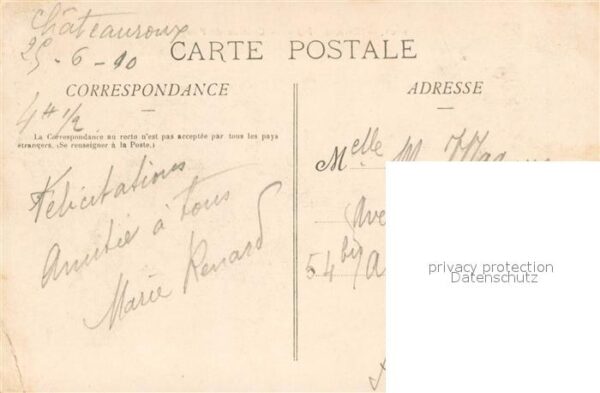 Châteauroux
25-6-10
CARTE POSTALE
CORRESPONDANCE
ADRESSE
4H 1/2
La Correspondance au recto n'est pas acceptée par tous les pays
étrangers. (Se renseigner à la Poste.)
Félicitations
Amitié à tous
Marie Renard
Melle M.
Ave
54 bis A
privacy protection
Datenschutz